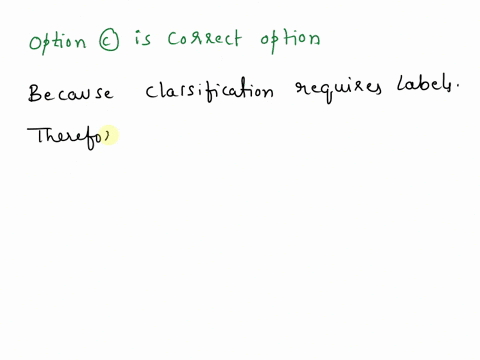 Option © is correct option
Because classification requires labels.
Therefor